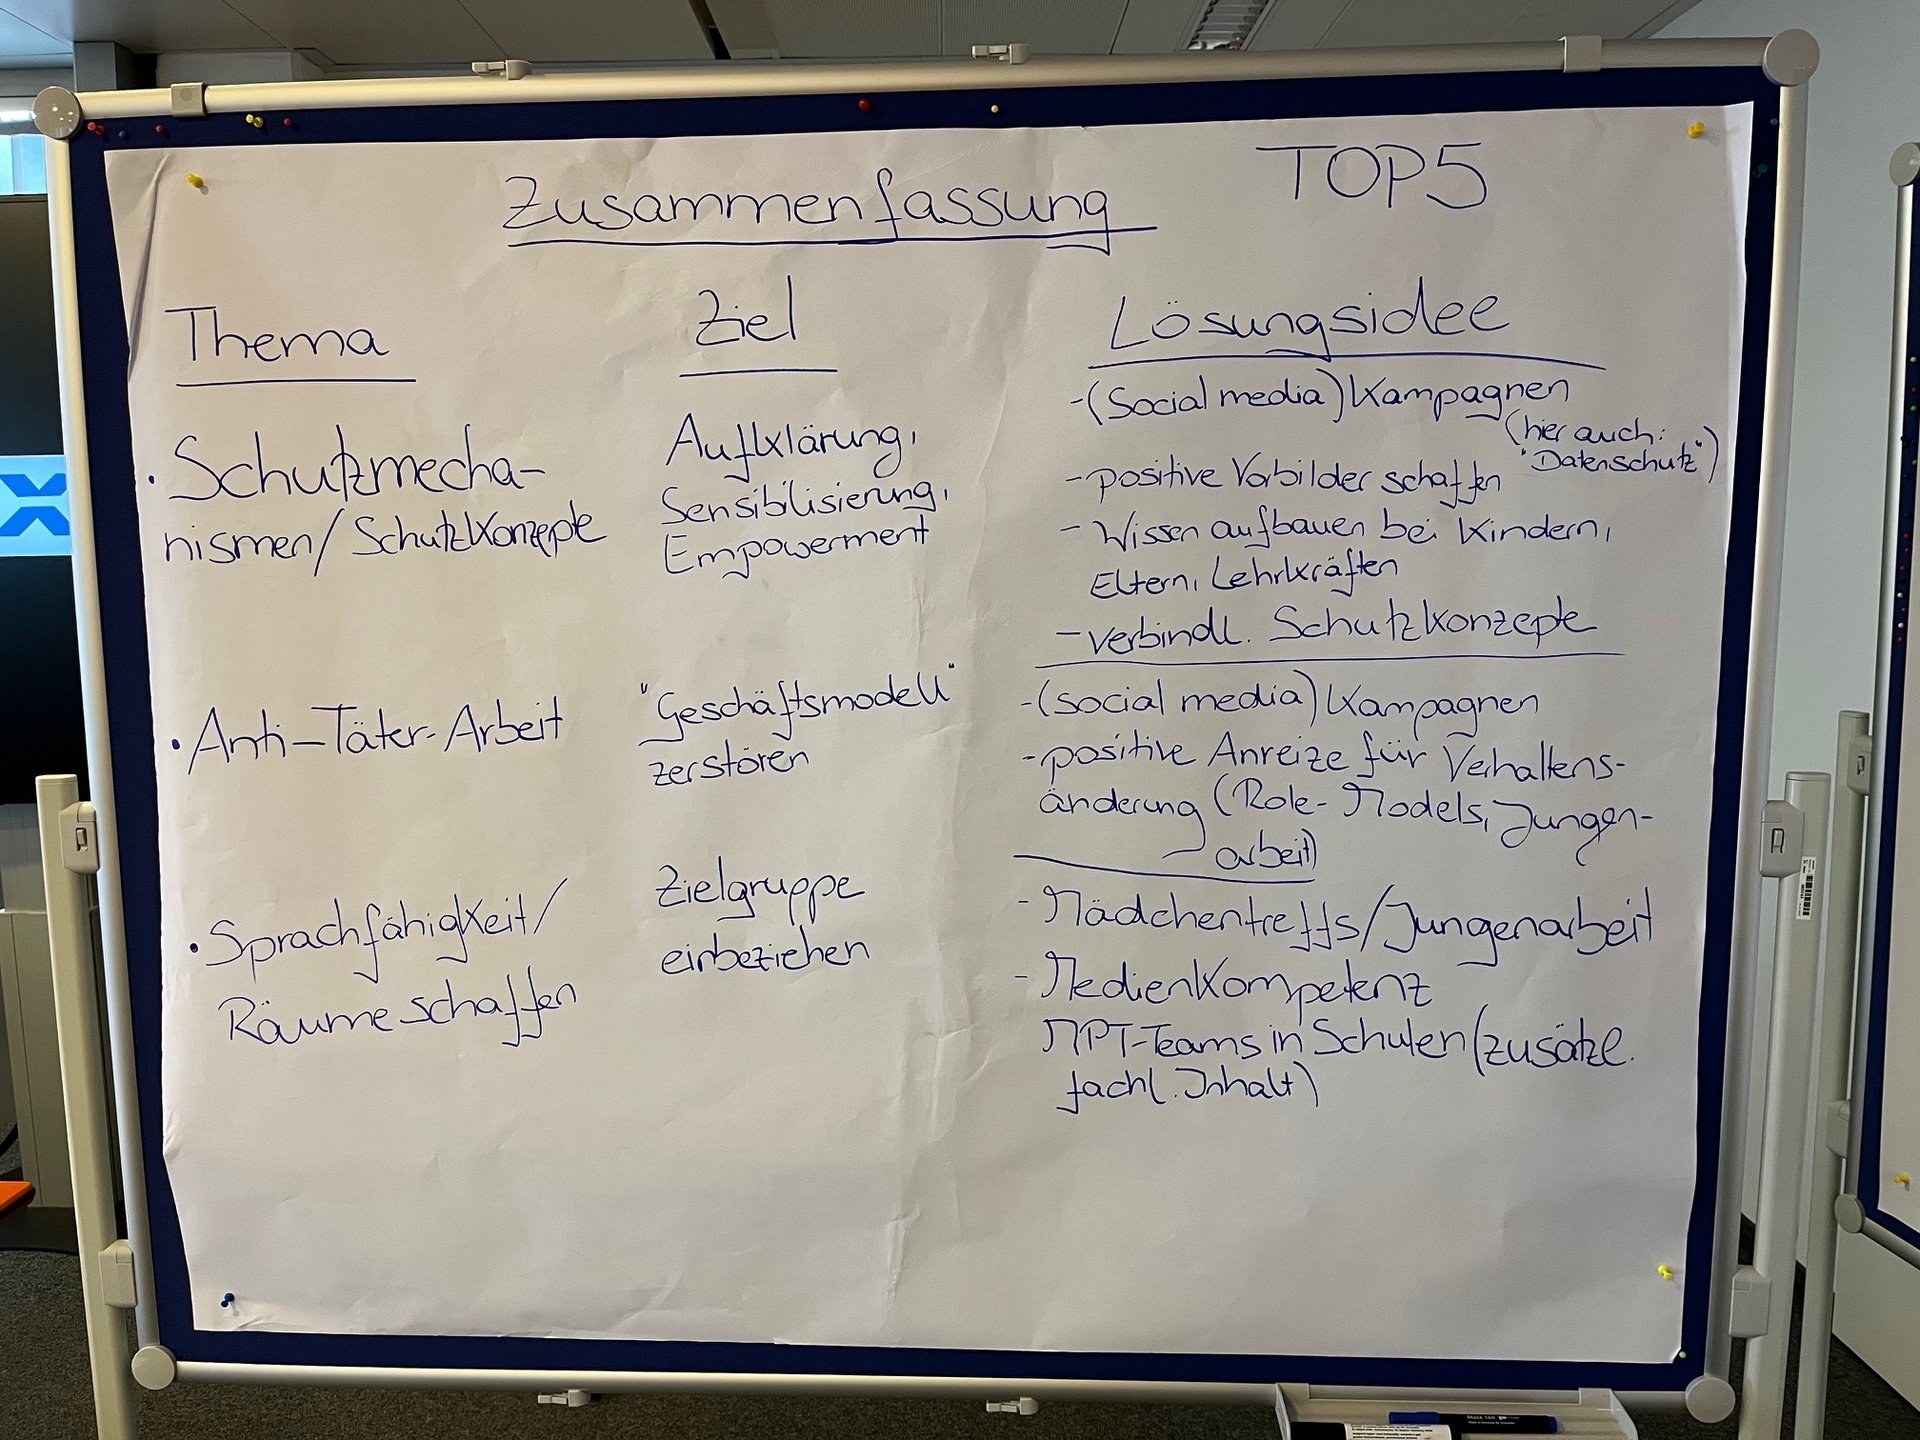 Zusammenfassung
TOP5
Thema
Ziel
Lösungsidee
· Schutzmecha-
nismen/Schutzkonzepte
Aufklärung,
Sensibilisierung,
Empowerment
-(Social media) Kampagnen
(hier auch:
"Datenschutz")
- positive Vorbilder schaffen
- Wissen aufbauen bei Kindern,
Eltern, Lehrkräften
- verbindl. Schutzkonzepte
· Anti-Täter-Arbeit
"Geschäftsmodell"
zerstören
-(social media) Kampagnen
- positive Anreize für Verhaltens-
änderung (Role-Models, Jungen-
arbeit)
· Sprachfähigkeit/
Räume schaffen
Zielgruppe
einbeziehen
- Mädchentreffs/Jungenarbeit
- Medienkompetenz
MPT-Teams in Schulen (zusätzl.
fachl. Inhalt)